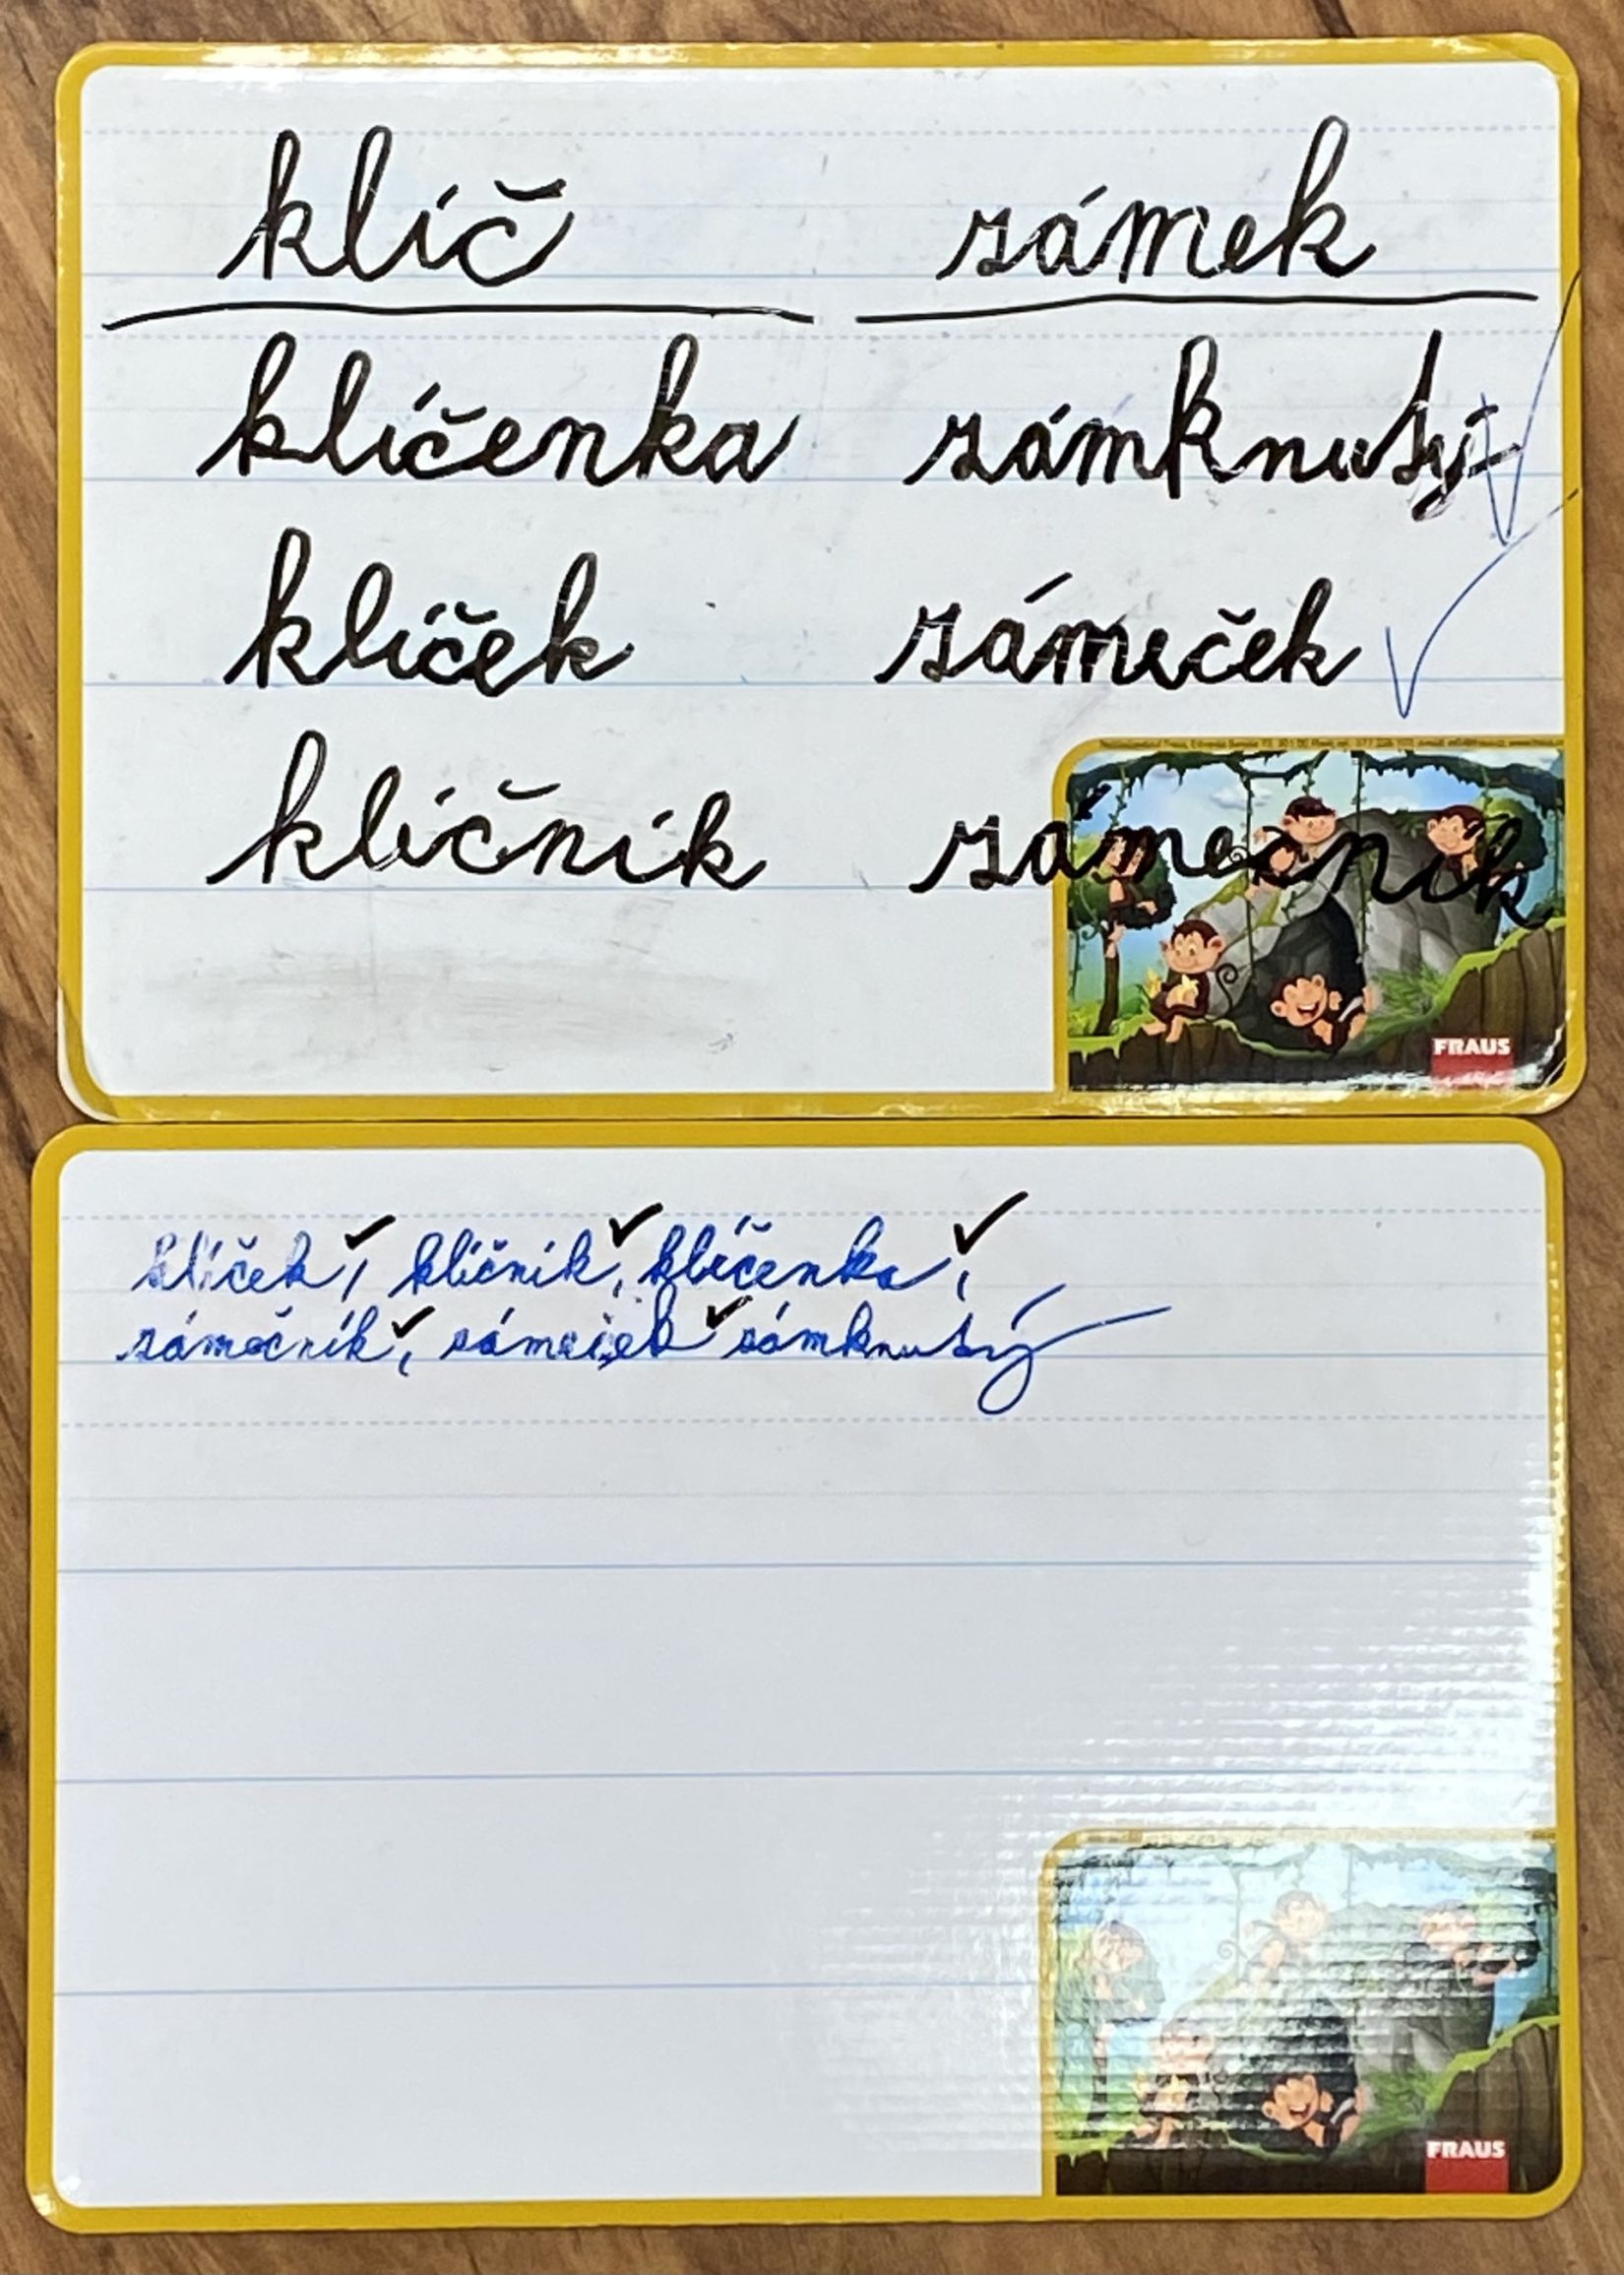 klíč sámek
klíčenka sámknutý
klíček sámeček
klíčník sámečník
FRAUS
klíček, klíčník, klíčenka,
sámečník, sámeček sámknutý
FRAUS